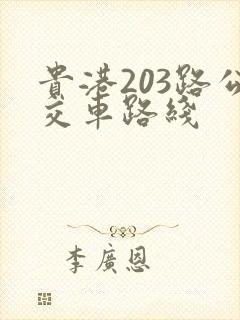 貴港203路公
交車路綫
李廣恩